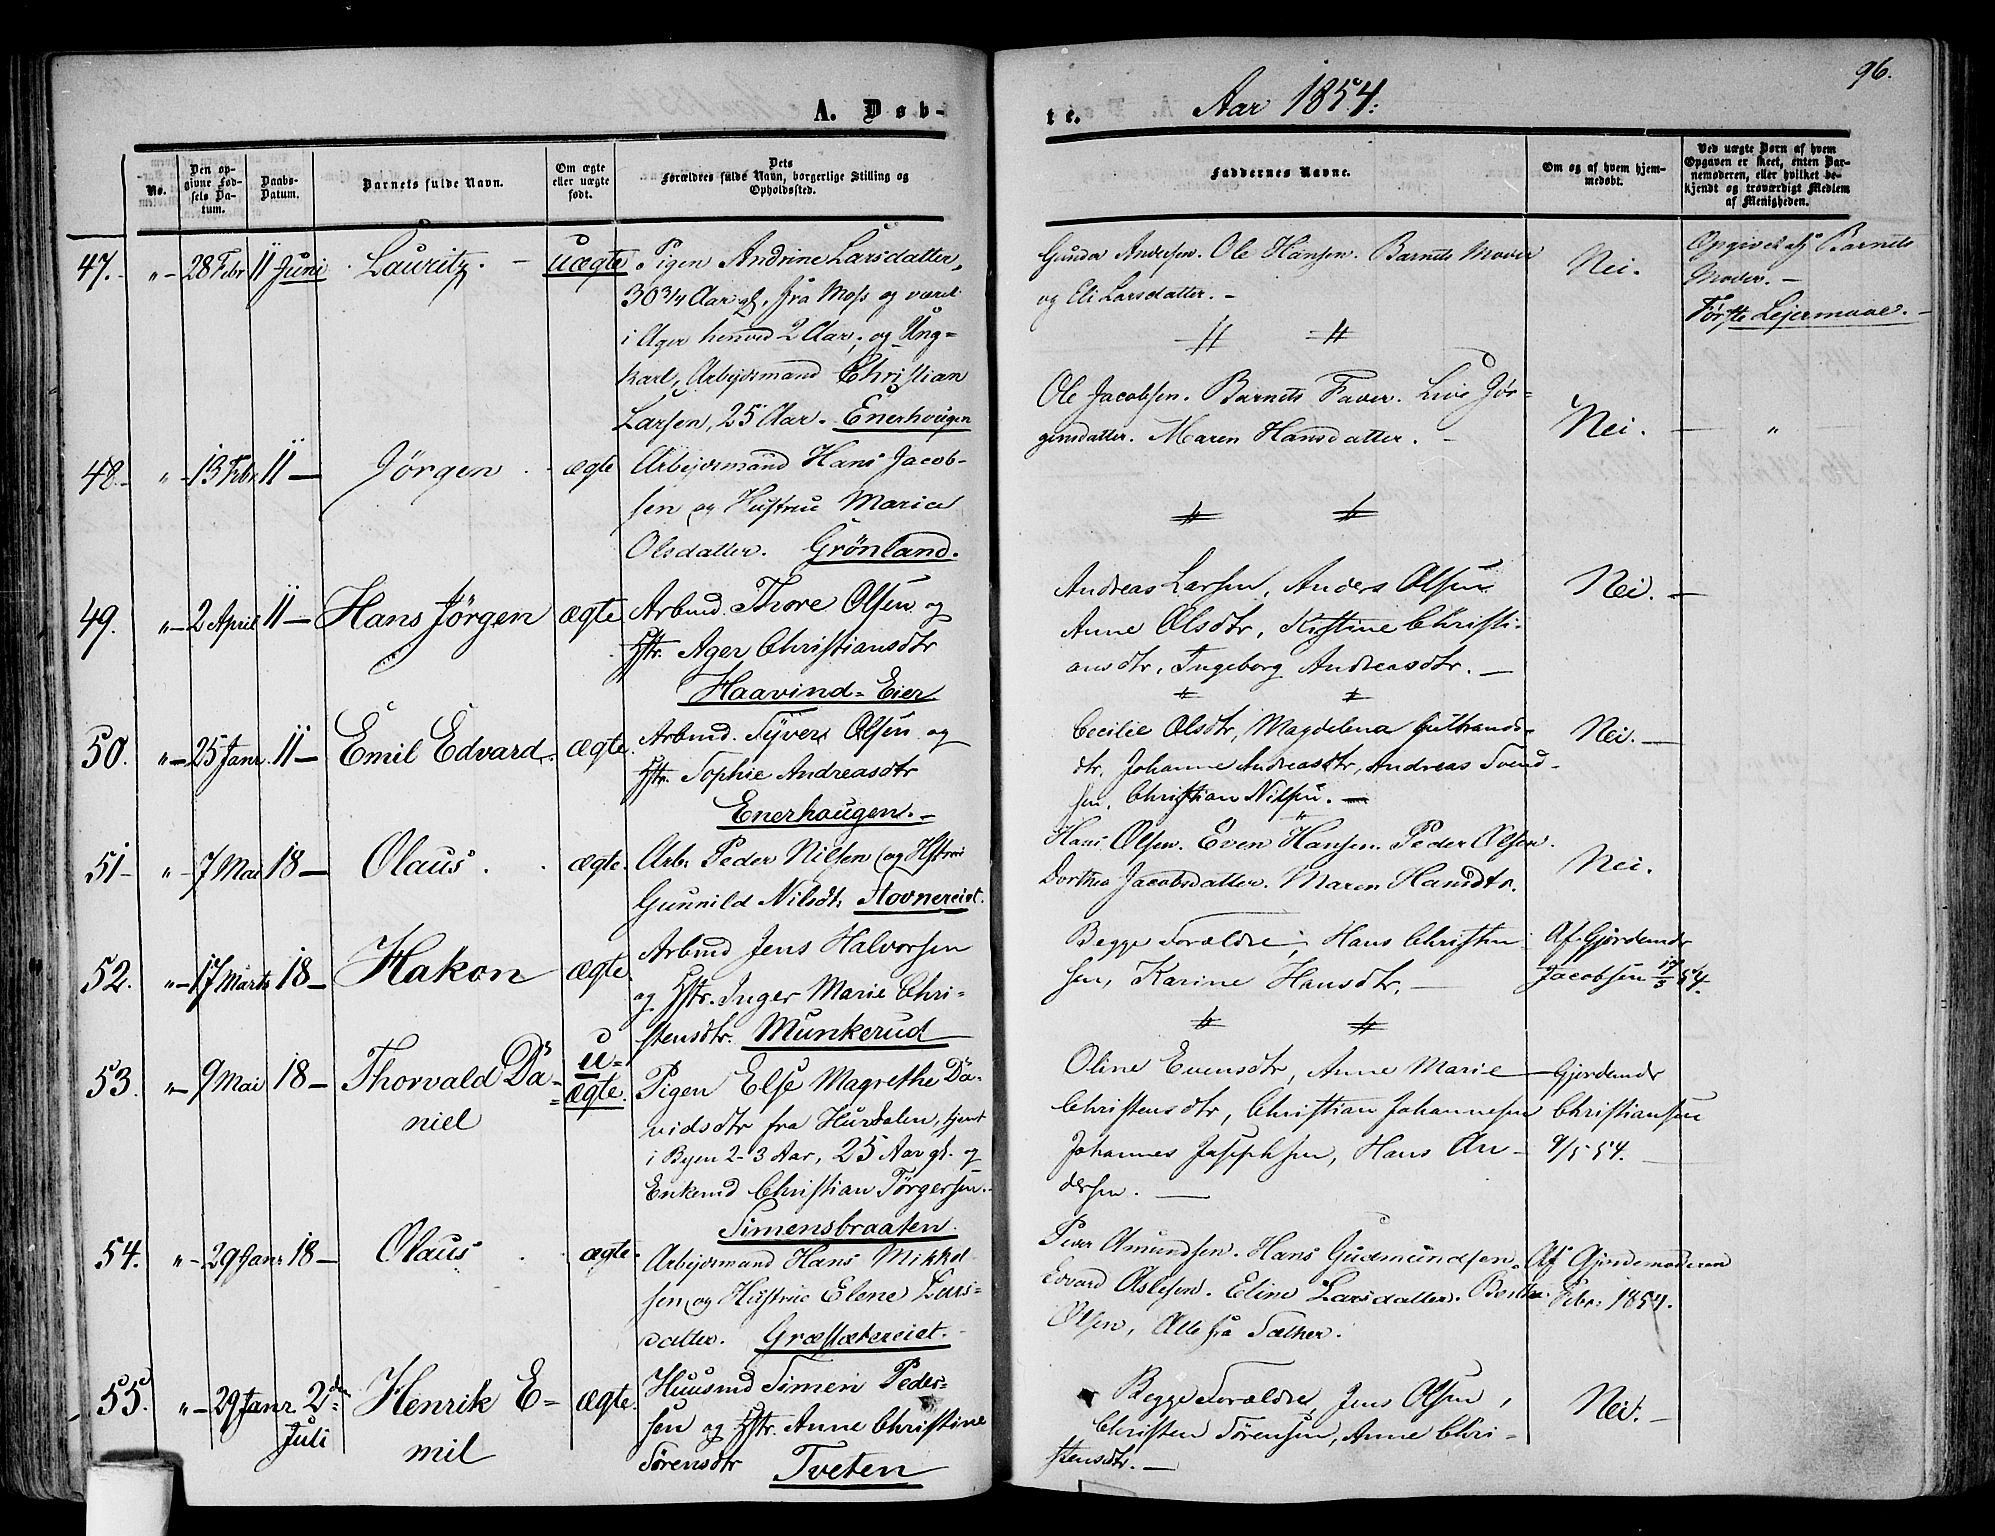 96.
A. Døb-
te. Aar 1854.
No.
Den opgivne Fødsels Datum.
Daabs-Datum.
Barnets fulde Navn.
Om ægte eller uægte født.
Dets Forældres fulde Navn, borgerlige Stilling og Opholdssted.
Faddernes Navne.
Om og af hvem hjemmedøbt.
Ved uægte Børn af hvem Opgaven er skeet, enten Barnemoderen, eller hvilket bekjendt og troværdigt Medlem af Menigheden.
47. „ 28 Febr 11 Juni Lauritz. uægte Pigen Andrine Larsdatter,
30 3/4 Aar gl. fra Moss og været
i Ager henved 2 Aar; og Ung-
karl, Arbejdsmand Christian
Larsen, 25 Aar. Enerhougen
Gunder Andersen. Ole Hansen. Barnets Moder
og Eli Larsdatter.
Nei.
Opgivet af Barnets
Moder.
Første Lejermaal.
48. „ 13 Febr 11 Jørgen ægte Arbejdsmand Hans Jacob-
sen og Hustrue Maria
Olsdatter. Grønland.
Ole Jacobsen. Barnets Fader. Live Jør-
gensdatter. Maren Hansdatter.
Nei. „
49. „ 2 April 11 Hans Jørgen ægte Arbmd. Thore Olsen og
Hstr. Ager Christiansdtr
Haavind-Eier
Andreas Larsen, Anders Olsen
Anne Olsdtr, Kistine Christi-
ansdtr, Ingeborg Andreasdtr.
Nei.
50. „ 25 Janr. 11 Emil Edvard. ægte. Arbmd. Syvers Olsen og
Hstr. Sophie Andreasdtr
Enerhaugen.
Cecilie Olsdtr, Magdelena Gulbrands-
dtr, Johanne Andreasdtr, Andreas Svend-
sen, Christian Nilsen.
Nei.
51 „ 7 Mai 18 Olaus. ægte. Arbr Peder Nilsen og Hstrui
Gunnild Nilsdt. Stovnereiet.
Hans Olsen. Even Hansen. Peder Olsen.
Dorthea Jacobsdatter. Maren Hansdtr.
Nei.
52. „ 17 Marts 18 Hakon ægte Arbmd Jens Halvorsen
og Hstr. Inger Marie Chri-
stensdtr. Munkerud
Begge Forældre, Hans Christen
sen, Karine Hansdtr.
Af Gjordemdr
Jacobsen 17/3 54.
53. „ 9 Mai 18 Thorvald Da-
niel
u-
ægte. Pigen Else Magrethe Da-
vidsdtr fra Hurdalen, tjent
i Byen 2-3 Aar, 25 Aar gl. og
Enkemd Christian Törgersen.
Simensbraaten.
Oline Evensdtr, Anne Marie
Christensdtr, Christian Johannesen
Johannes Josephsen, Hans An-
dersen.
Gjordemdr
Christiansen
9/5 54.
54. „ 29 Janr 18 Olaus ægte. Arbejdsmand Hans Mikkel
sen og Hustrue Elene Lars-
datter. Græsætereiet.
Peder Amundsen. Hans Gudmundsen.
Edvard Olslesen. Eline Larsdatter. Berthe
Olsen, Alle fra Sæther.
Af Gjordemoderen
Febr. 1854.
55. „ 29 Janr 2den
Juli
Henrik E-
mil
ægte. Huusmd Simen Peder-
sen og Hstr. Anne Christine
Sörensdtr Tveten
Begge Forældre, Jens Olsen,
Christen Sörensen, Anne Chri-
stensdtr.
Nei.